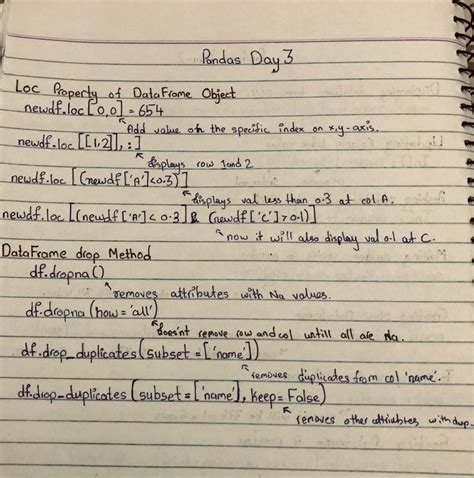 Pandas Day 3
Loc Property of DataFrame Object
newdf.loc [0,0] = 654
Add value oh the specific index on x,y-axis.
newdf.loc [[1,2]],:]
displays row 1 and 2
newdf.loc [(newdf['A']<0.3)]
displays val less than 0.3 at col A.
newdf.loc [(newdf['A']< 0.3] & (newdf['C']>0.1)]
now it will also display val 0.1 at C.
DataFrame drop Method
df.dropna()
removes attributes with Na values.
df.dropna (how='all')
doesn't remove row and col untill all are Na.
df.drop_duplicates (subset=['name'])
removes duplicates from col 'name'.
df.drop_duplicates (subset=['name'], keep=False)
removes other attributes with dup.